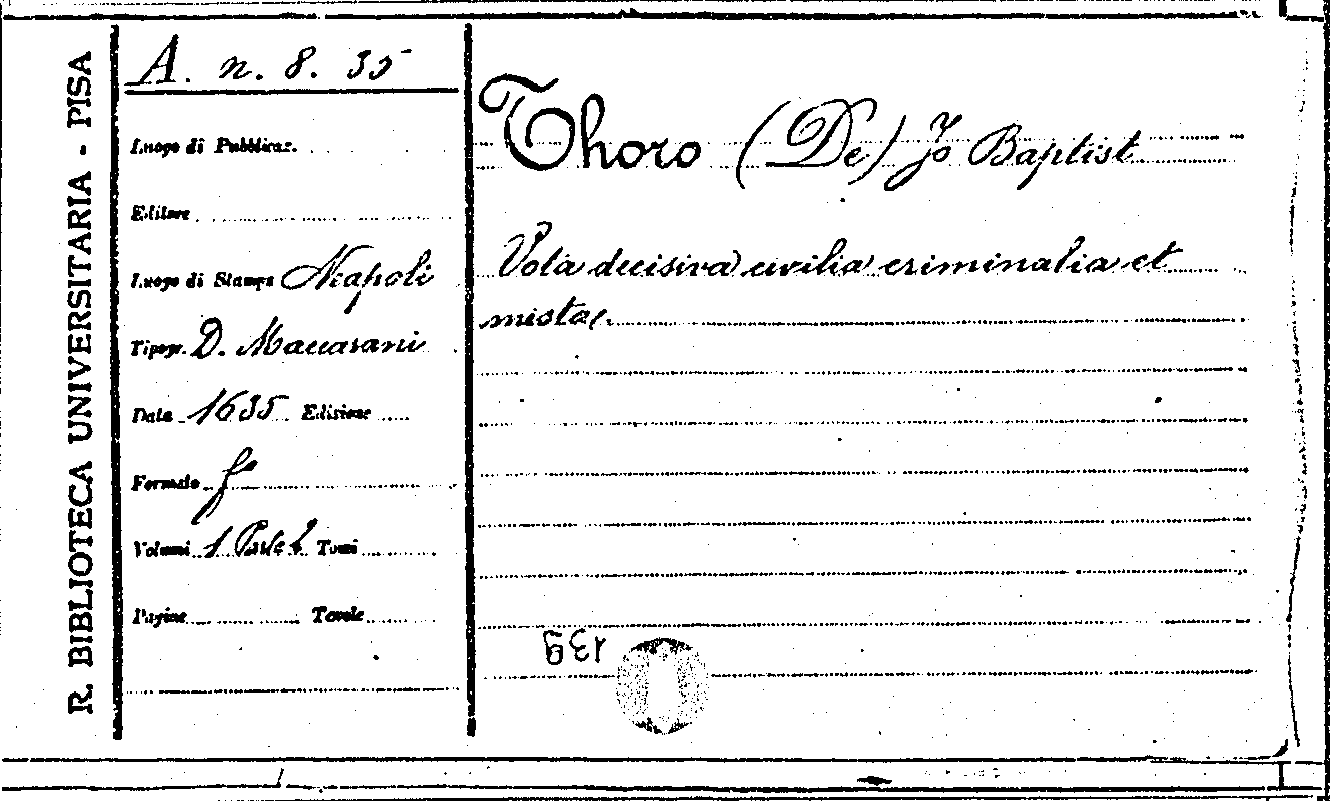 R. BIBLIOTECA UNIVERSITARIA - PISA
A. n. 8. 35
Luogo di Pubblicaz.
Editore
Luogo di Stampa Napoli
Tipogr. D. Maccarani
Data 1635 Edizione
Formato f°
Volumi 1 Tomi
Pagine Tavole
Thoro (De) Jo Baptist
Vota decisiva civilia criminalia et
mista
139